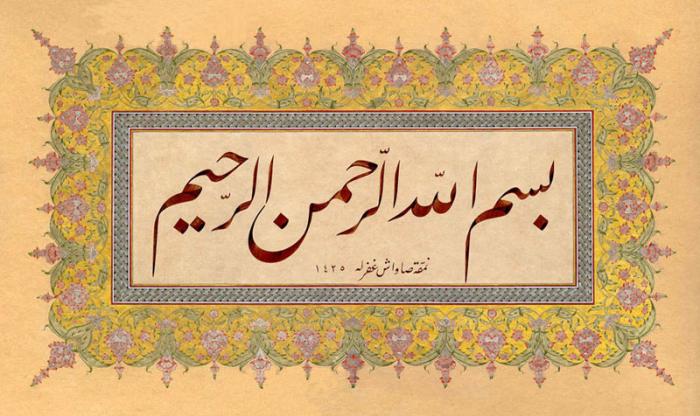 بسم الله الرحمن الرحيم
نمقه صاواش غفرله ١٤٢٥